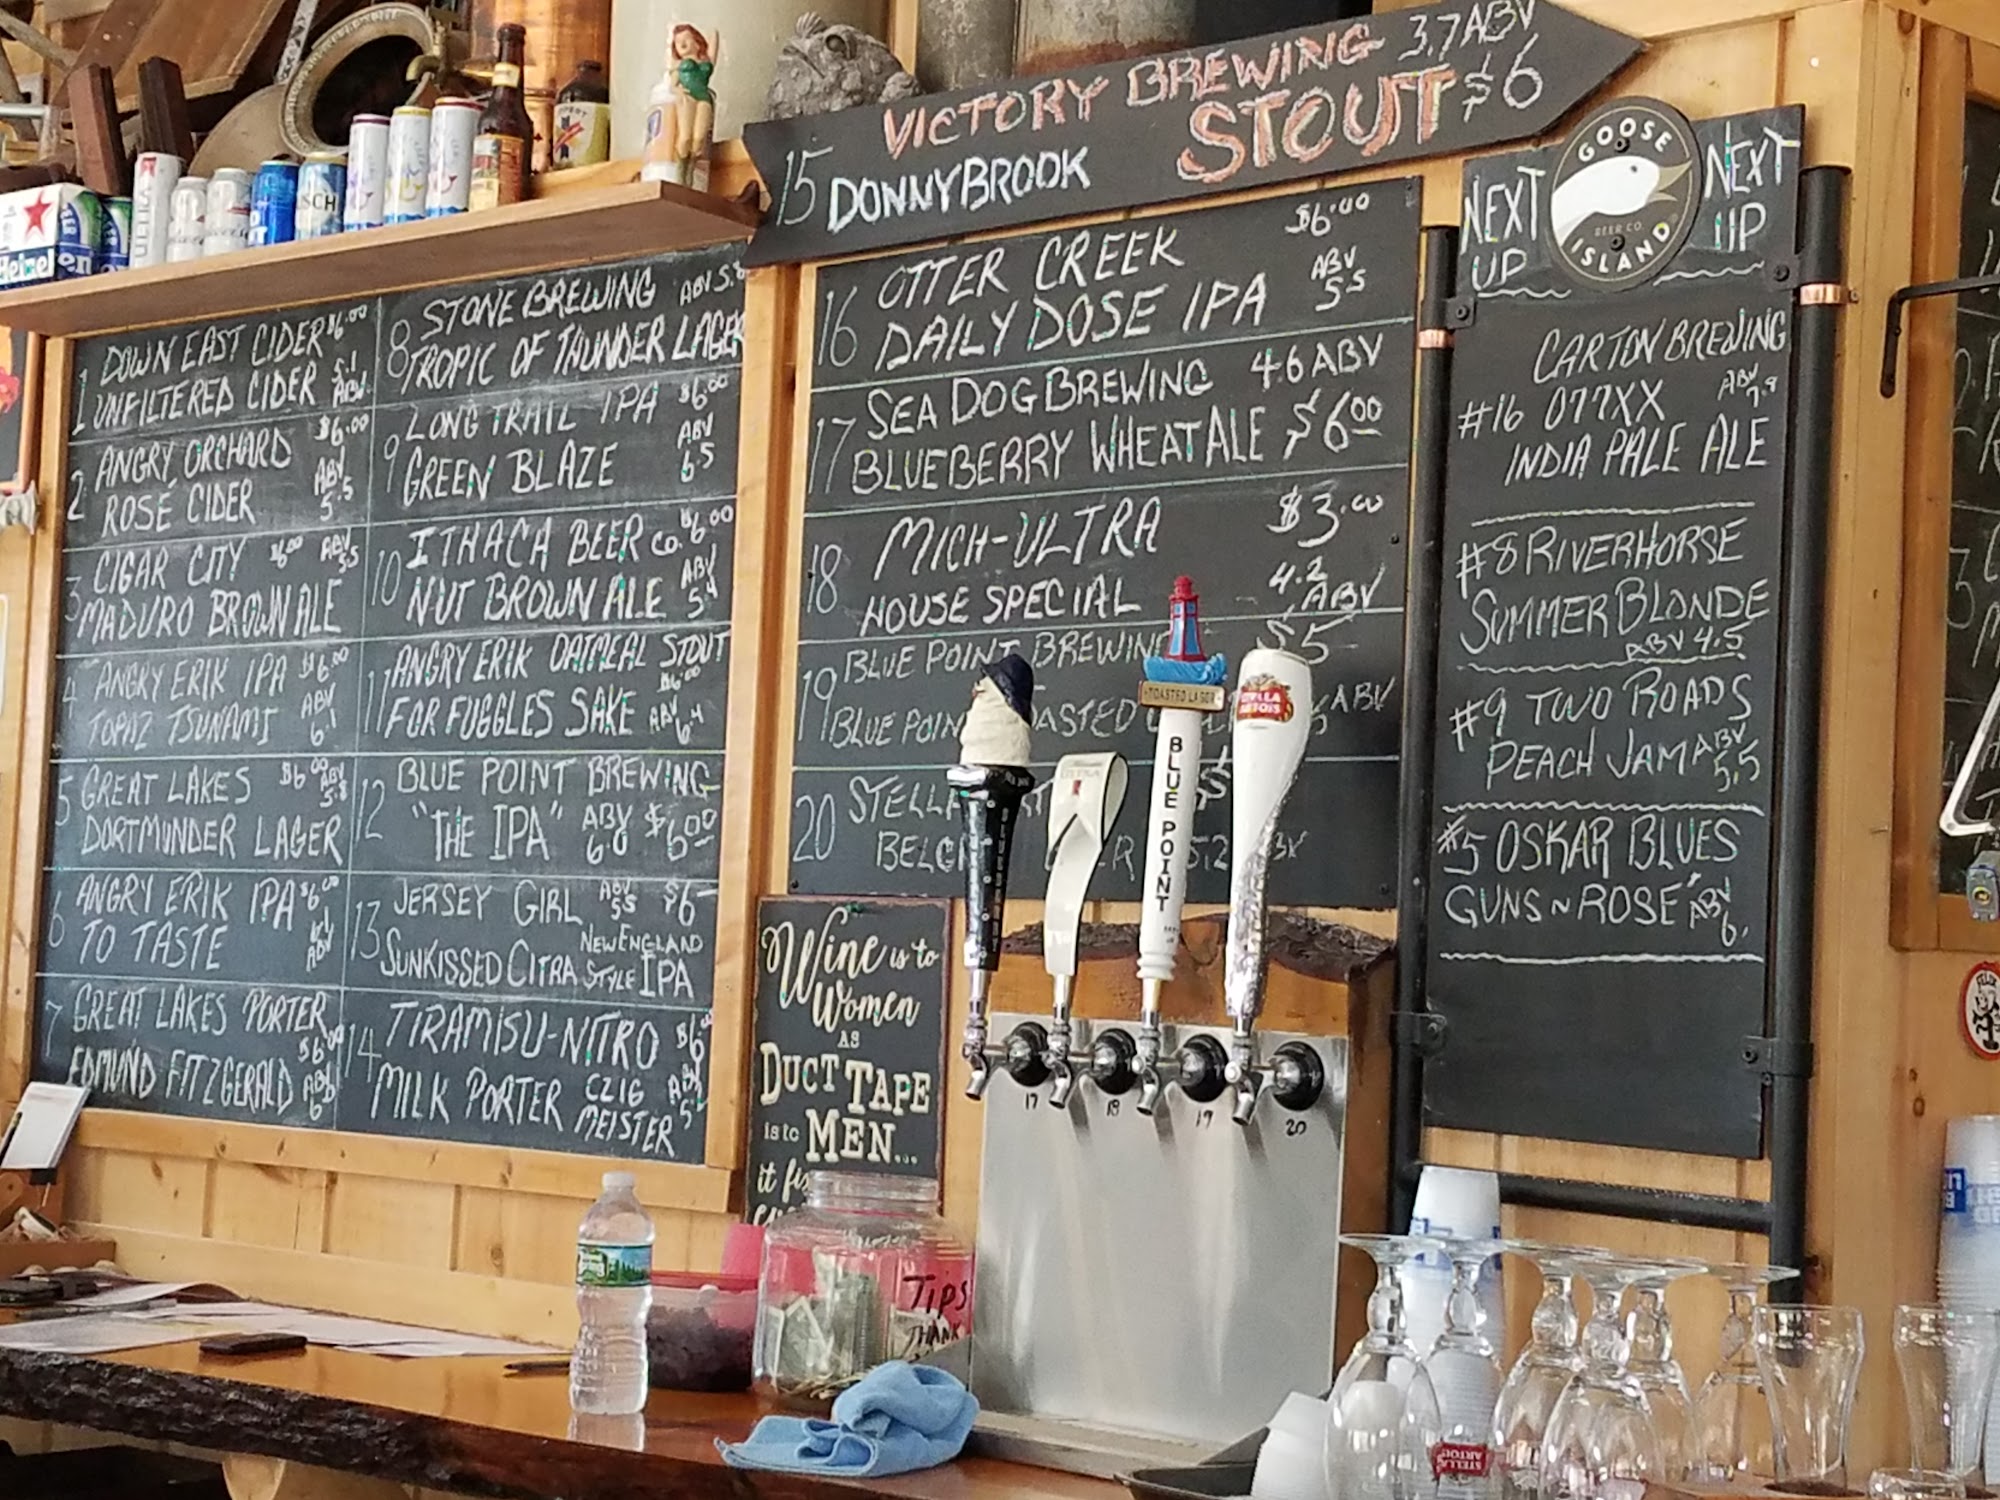 15 VICTORY BREWING 3.7 ABV
DONNYBROOK STOUT $6
1 DOWN EAST CIDER $6.00
UNFILTERED CIDER 5.1 ABV
2 ANGRY ORCHARD $6.00
ROSÉ CIDER ABV 5.5
3 CIGAR CITY $6.00 ABV 5.5
MADURO BROWN ALE
4 ANGRY ERIK IPA $6.00
TOPAZ TSUNAMI ABV 6.1
5 GREAT LAKES $6.00 ABV 5.8
DORTMUNDER LAGER
6 ANGRY ERIK IPA $6.00
TO TASTE ABV
7 GREAT LAKES PORTER
EDMUND FITZGERALD $6.00 ABV 6
8 STONE BREWING ABV 5.8
TROPIC OF THUNDER LAGER
9 LONG TRAIL IPA $6.00
GREEN BLAZE ABV 6.5
10 ITHACA BEER CO. $6.00
NUT BROWN ALE ABV 5.4
11 ANGRY ERIK OATMEAL STOUT
FOR FUGGLES SAKE $6.00 ABV 6.4
12 BLUE POINT BREWING
"THE IPA" ABV 6.0 $6.00
13 JERSEY GIRL ABV 5.5 $6
SUNKISSED CITRA NEW ENGLAND STYLE IPA
14 TIRAMISU-NITRO $6
MILK PORTER CZIG MEISTER ABV 5
16 OTTER CREEK $6.00
DAILY DOSE IPA ABV 5.5
17 SEA DOG BREWING 4.6 ABV
BLUEBERRY WHEAT ALE $6.00
18 MICH-ULTRA $3.00
HOUSE SPECIAL 4.2 ABV
19 BLUE POINT BREWING $5
BLUE POINT TOASTED ABV
20 STELLA
5.2
NEXT UP
GOOSE ISLAND
BEER CO.
NEXT UP
CARTON BREWING
#16 077XX ABV 7.8
INDIA PALE ALE
#8 RIVERHORSE
SUMMER BLONDE
ABV 4.5
#9 TWO ROADS
PEACH JAM ABV 5.5
#5 OSKAR BLUES
GUNS N ROSÉ ABV 6.
Wine is to
Women
AS
DUCT TAPE
is to MEN...
it
TOASTED LAGER
BLUE POINT
STELLA
ARTOIS
17 18 19 20
Tips
THANK
STELLA
ARTOIS
Heineken
ULTRA